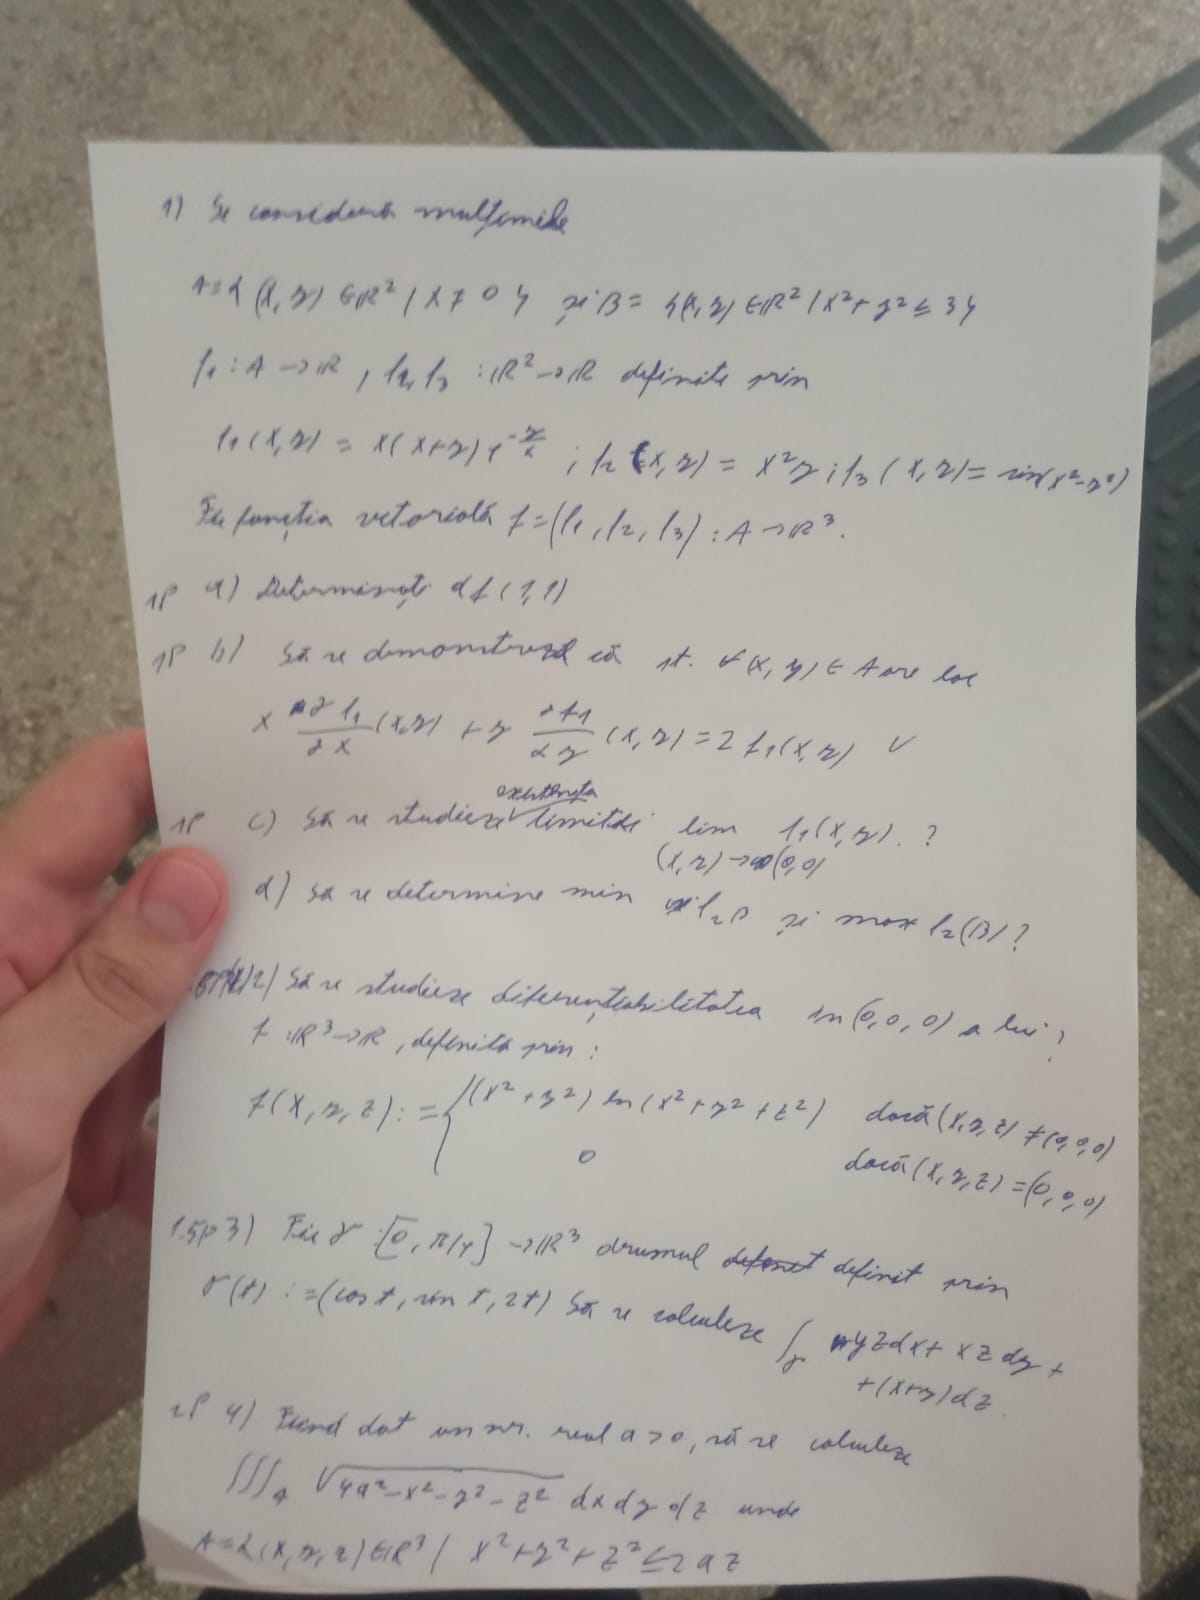 1) Se consideră mulțimile
A={(x,y) ∈ R² | x ≠ 0} și B= {(x,y) ∈ R² | x²+y² ≤ 3}
f₁ : A → R , f₂, f₃ : R² → R definite prin
f₁(x,y) = x(x+y) e^(-y/x) ; f₂(x,y) = x²y ; f₃(x,y) = sin(x²-y²)
Fie funcția vectorială f=(f₁, f₂, f₃) : A → R³.
1P a) Determinați df(1,1)
1P b) Să se demonstreze că pt. ∀(x,y) ∈ A are loc
x ∂f₁/∂x (x,y) + y ∂f₁/∂y (x,y) = 2 f₁(x,y) ✓
existența
1P c) Să se studieze limitei lim f₁(x,y). ?
(x,y)→(0,0)
d) Să se determine min f₂B și max f₂(B) ?
2) Să se studieze diferențiabilitatea în (0,0,0) a lui ?
f : R³ → R, definită prin :
f(x,y,z) := { (x²+y²) ln(x²+y²+z²) dacă (x,y,z) ≠ (0,0,0)
0 dacă (x,y,z) = (0,0,0)
1.5P 3) Fie γ : [0, π/4] → R³ drumul definit prin
γ(t) := (cos t, sin t, 2t) Să se calculeze ∫γ yzdx + xzdy +
+(x+y)dz
2P 4) Fiind dat un nr. real a>0, să se calculeze
∭A √(4a²-x²-y²-z²) dx dy dz unde
A={(x,y,z) ∈ R³ | x²+y²+z² ≤ 2az